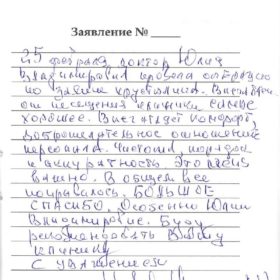 Заявление № ____
25 февраля доктор Юлия
Владимировна провела операцию
по замене хрусталика. Впечатления
от посещения клиники самые
хорошее. Выглядит комфорт,
доброжелательное отношение
персонала. Чистота, порядок
и аккуратность. Это очень
важно. В общем все
понравилось. БОЛЬШОЕ
СПАСИБО. Особенно Юлии
Владимировне. Буду
рекомендовать Вашу
клинику
С уважением